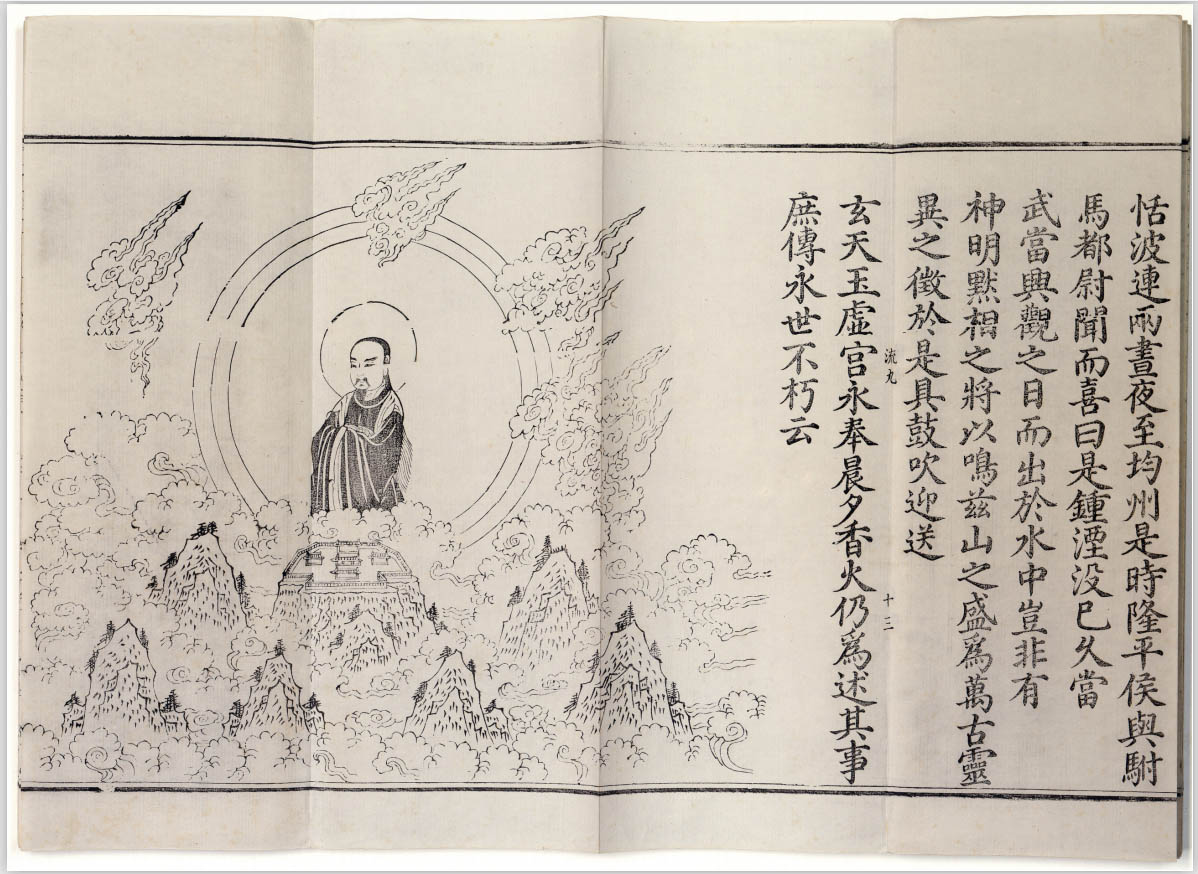 恬波連兩晝夜至均州是時隆平侯與駙
馬都尉聞而喜曰是鍾湮没已久當
武當興觀之日而出於水中豈非有
神明黙相之將以鳴兹山之盛爲萬古靈
異之徵於是具鼓吹迎送
流九
十三
玄天玉虚宫永奉晨夕香火仍爲述其事
庶傳永世不朽云